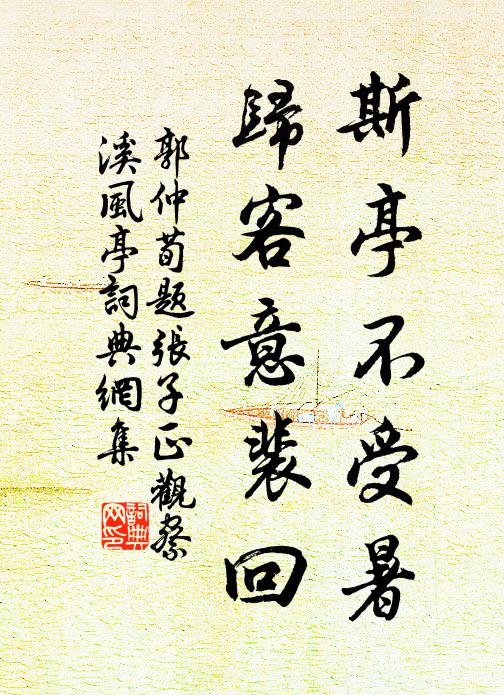 斯亭不受暑
歸客意裴回
郭仲荀題張子正觀察
溪風亭詞典網集
詞典
网印